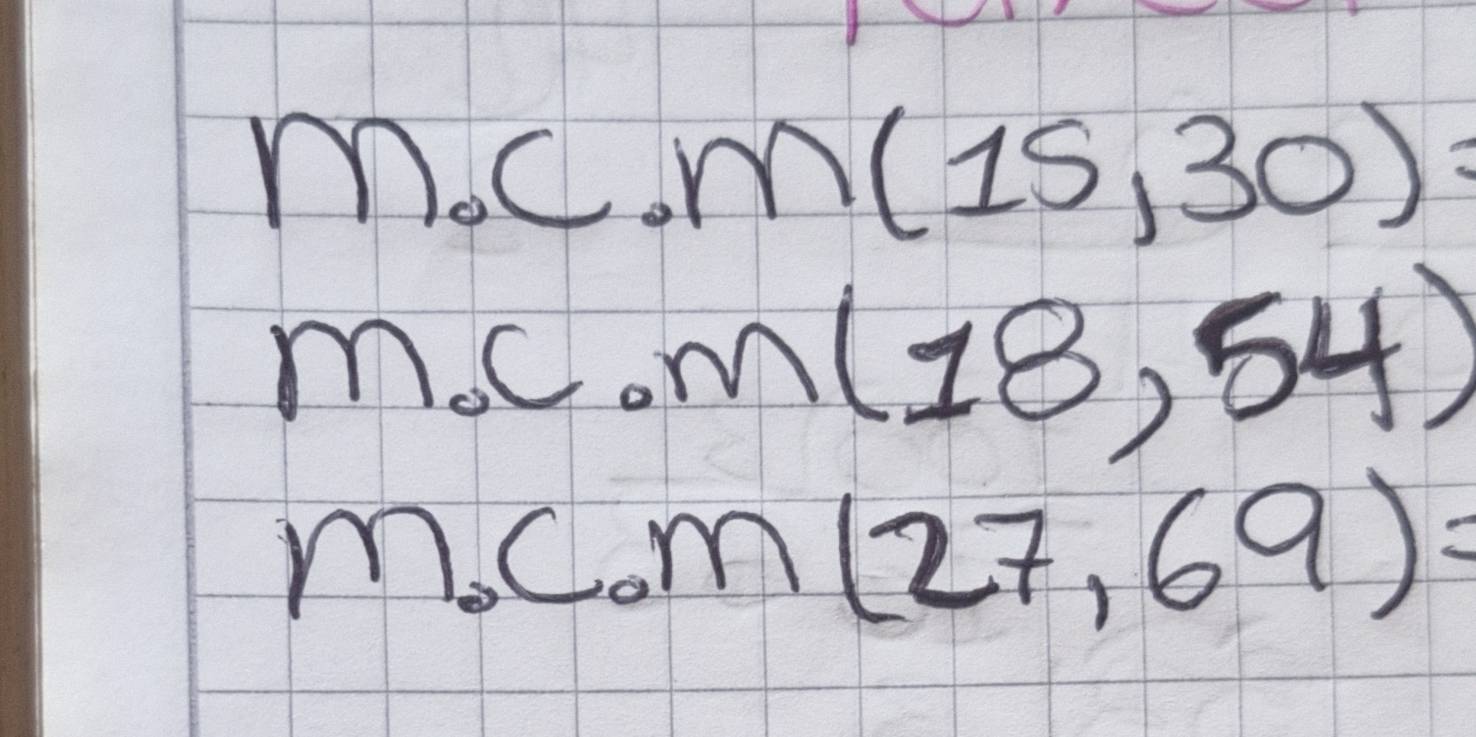 m.c.m(15,30)=
m.c.m(18,54)
m.c.m(27,69)=